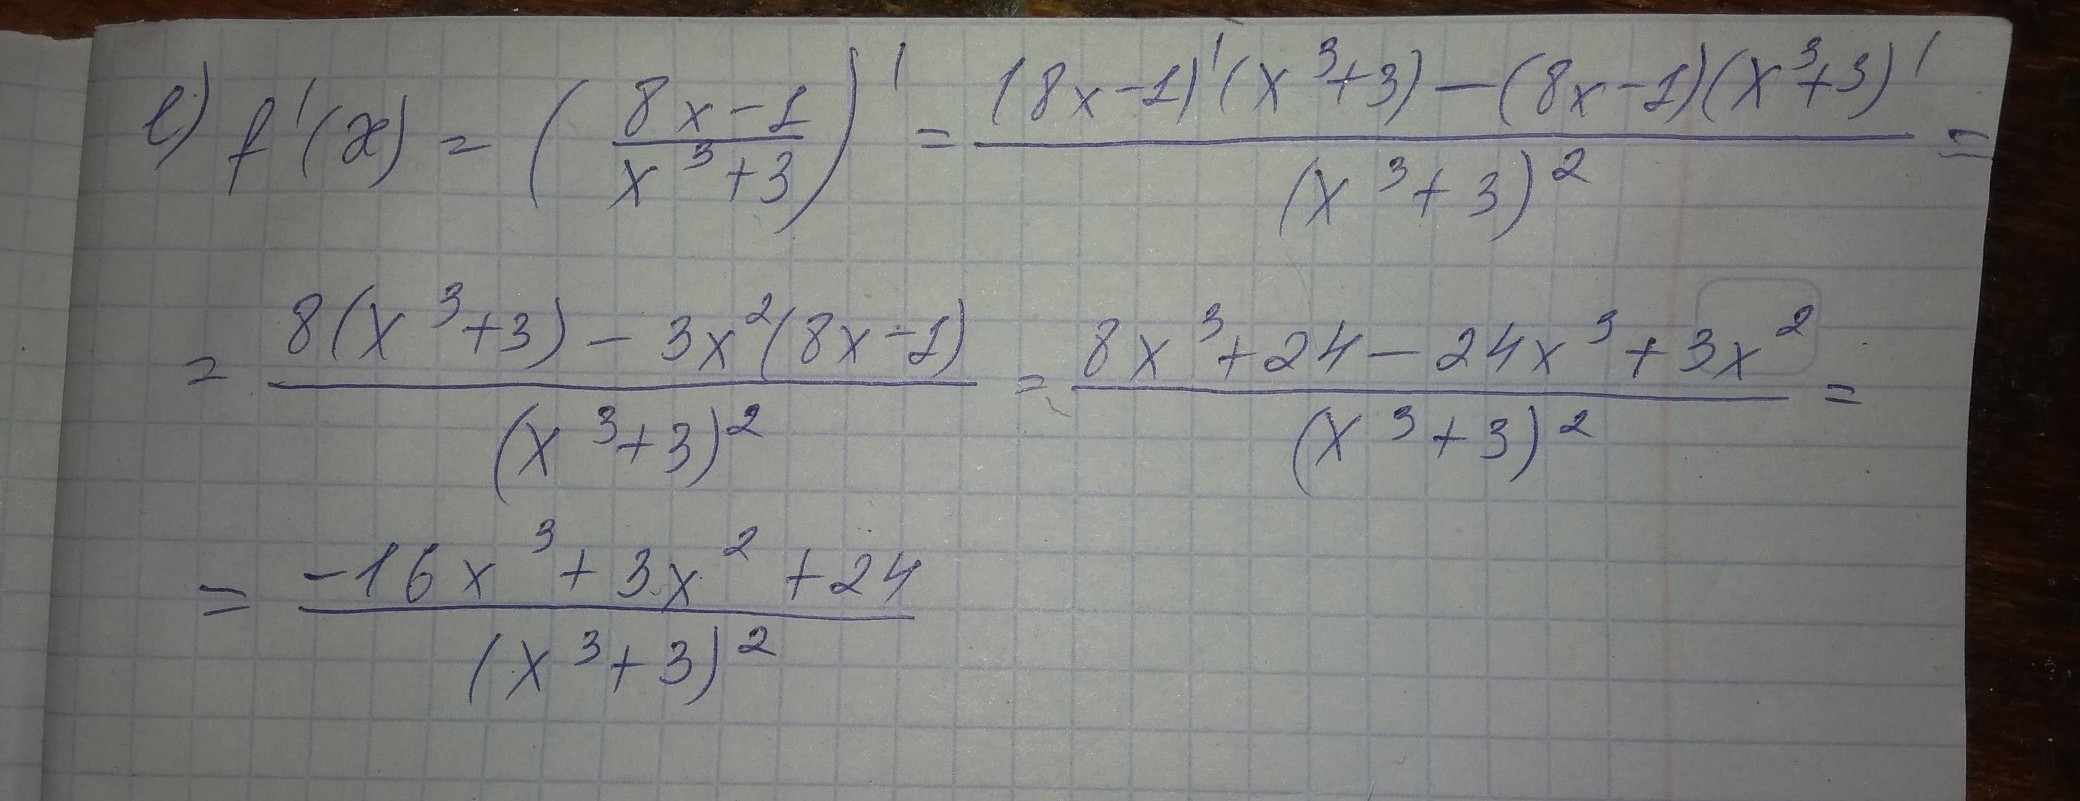 e) f'(x) = ((8x-1)/(x³+3))' = ((8x-1)'(x³+3)-(8x-1)(x³+3)')/(x³+3)² =
= (8(x³+3)-3x²(8x-1))/(x³+3)² = (8x³+24-24x³+3x²)/(x³+3)² =
= (-16x³+3x²+24)/(x³+3)²